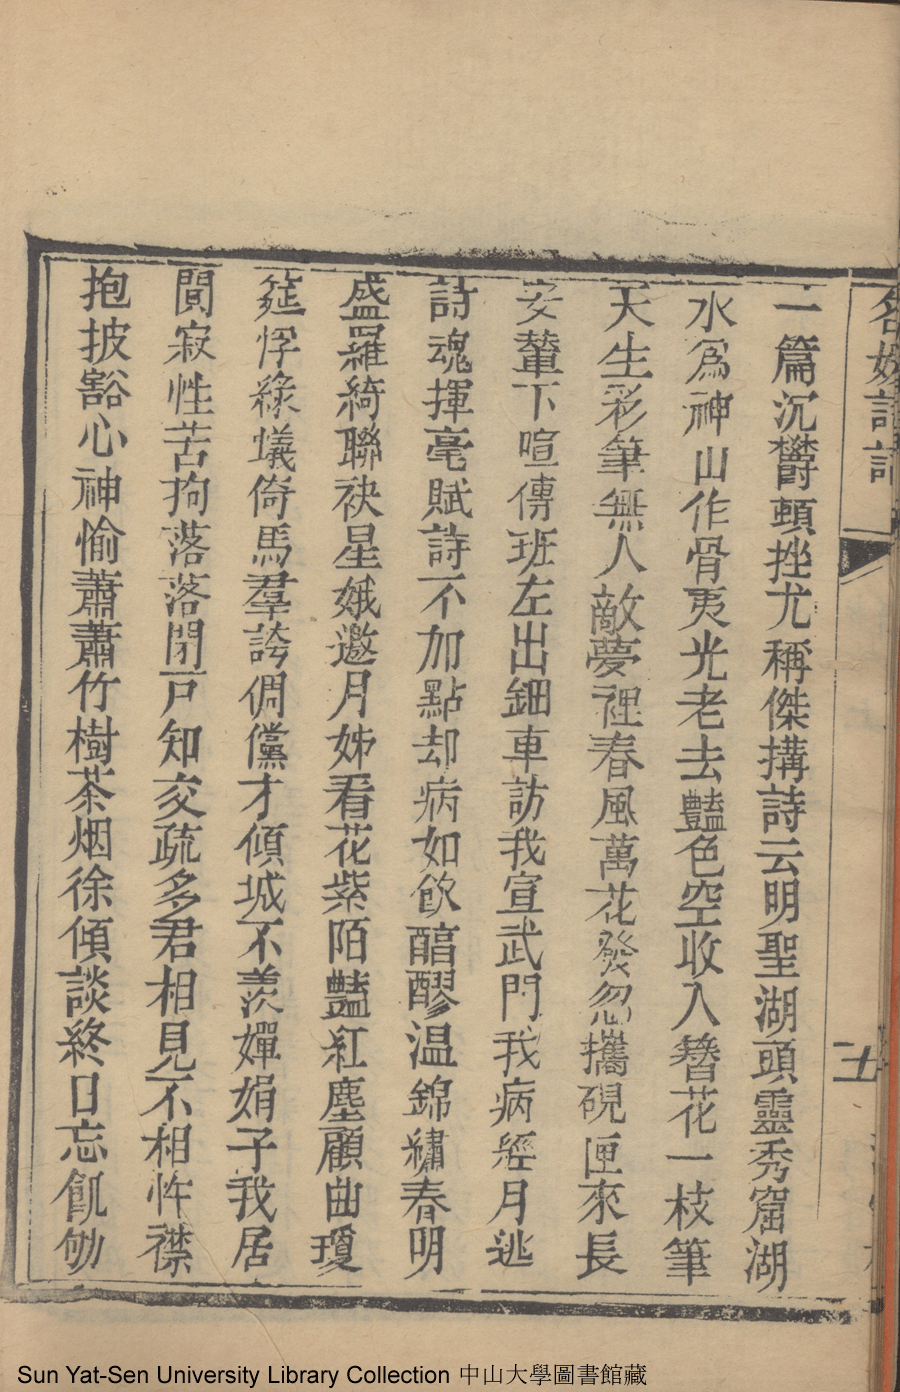 名媛詩話
一篇沉欝頓挫尤稱傑搆詩云明聖湖頭靈秀窟湖
水爲神山作骨夷光老去豔色空收入簪花一枝筆
天生彩筆無人敵夢裡春風萬花發忽攜硯匣來長
安輦下喧傳班左出鈿車訪我宣武門我病經月逃
詩魂揮毫賦詩不加點却病如飲醕醪温錦繡春明
盛羅綺聯袂星娥邀月姊看花紫陌豔紅塵顧曲瓊
筵浮綠蟻倚馬羣誇倜儻才傾城不羨嬋娟子我居
閒寂性苦拘落落閉戸知交疏多君相見不相忤襟
抱披豁心神愉蕭蕭竹樹茶烟徐傾談終日忘飢劬
Sun Yat-Sen University Library Collection 中山大學圖書館藏